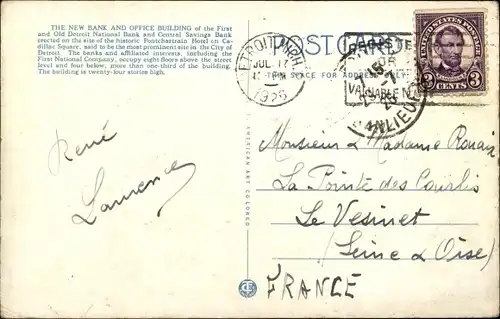 THE NEW BANK AND OFFICE BUILDING of the First
and Old Detroit National Bank and Central Savings Bank
erected on the site of the historic Pontchartrain Hotel on Ca-
dillac Square, said to be the most prominent site in the City of
Detroit. The banks and affiliated interests, including the
First National Company, occupy eight floors above the street
level and four below, more than one-third of the building.
The building is twenty-four stories high.
POST CARD
THIS SPACE FOR ADDRESS ONLY
DETROIT, MICH.
JUL 17
1926
REGISTER
OR
VALUABLE
BANLIEUE
UNITED STATES POSTAGE
LINCOLN
3 CENTS 3
AN AMERICAN ART COLORED
René
Laurence
Monsieur & Madame
La Pointe des
Le Vesinet
(Seine & Oise)
FRANCE